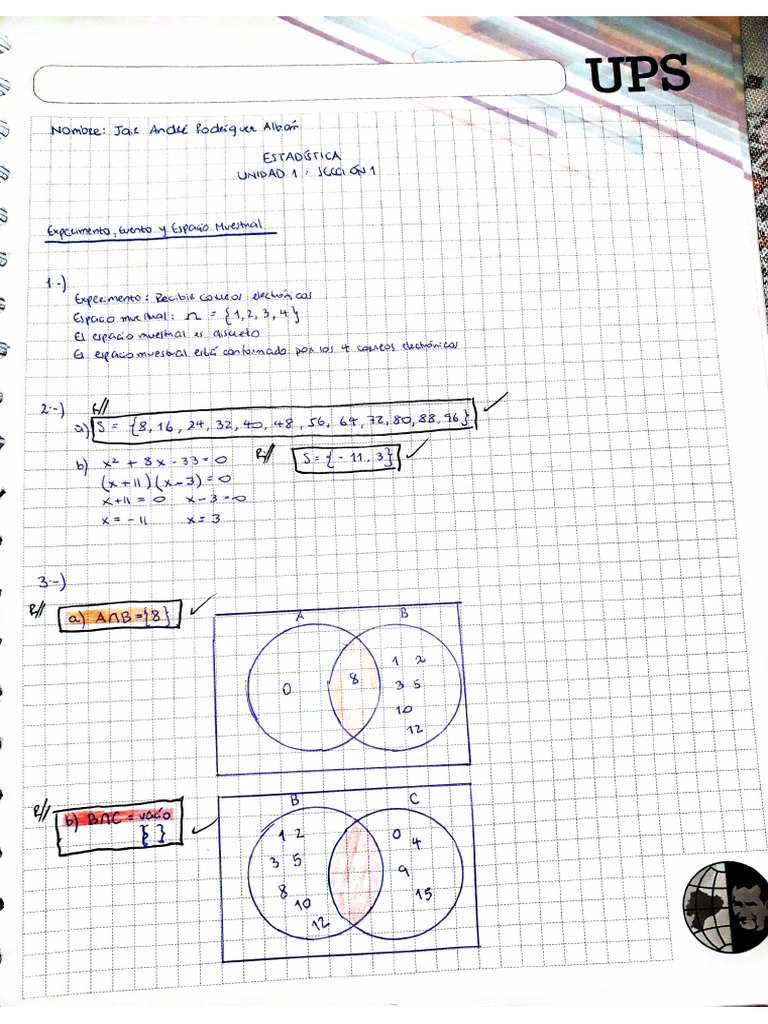 UPS
Nombre: Jair André Rodríguez Albán
ESTADÍSTICA
UNIDAD 1 - SECCIÓN 1
Experimento, Evento y Espacio Muestral
1.-)
Experimento: Recibir correos electrónicos
Espacio muestral: Ω = {1, 2, 3, 4}
El espacio muestral es discreto
El espacio muestral está conformado por los 4 correos electrónicos
2.-) R//
a) S = {8, 16, 24, 32, 40, 48, 56, 64, 72, 80, 88, 96}
b) x² + 8x - 33 = 0 R// S = {-11, 3}
(x + 11)(x - 3) = 0
x + 11 = 0 x - 3 = 0
x = -11 x = 3
3.-)
R// a) A∩B = {8}
A B
0 8 1 2
3 5
10
12
R// b) B∩C = vacío
{ }
B C
1 2 0 4
3 5 9
8 10 15
12